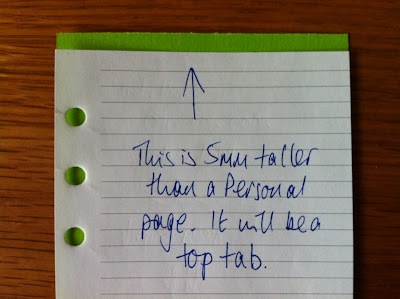 This is 5mm taller
than a Personal
page. It will be a
top tab.